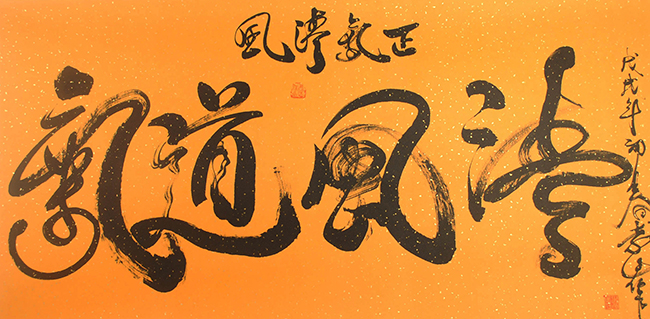 正氣清風
清風道氣
戊戌年初夏